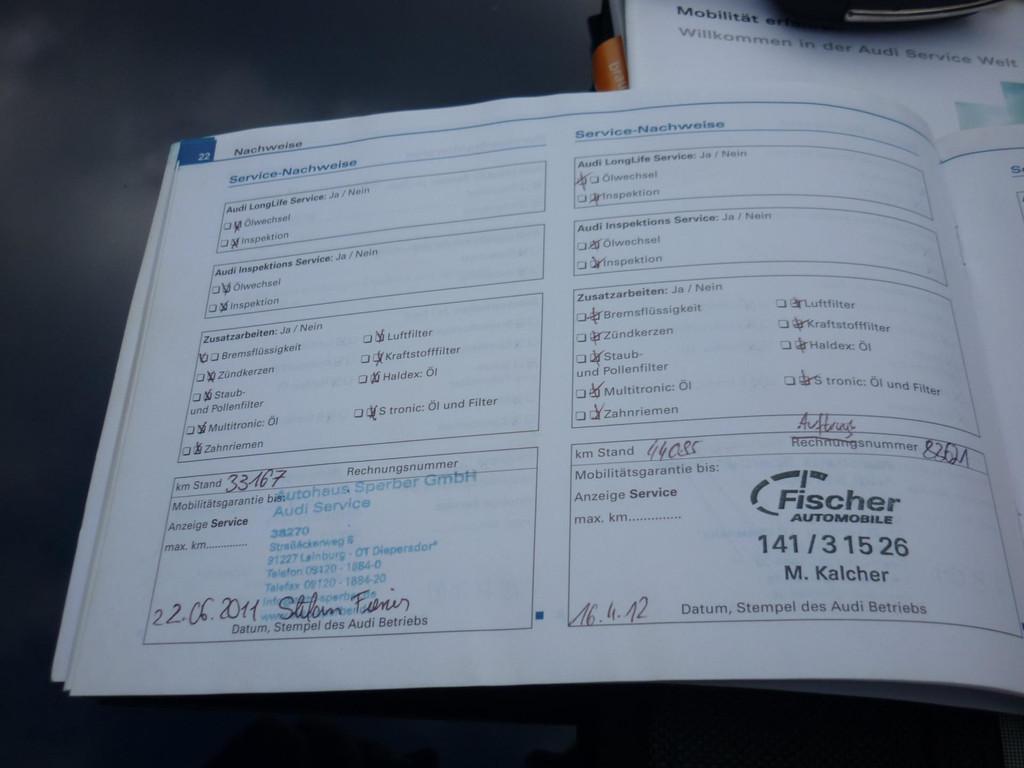 Mobilität
Willkommen in der Audi Service Welt
22 Nachweise
Service-Nachweise
Audi LongLife Service: Ja / Nein
Ölwechsel
Inspektion
Audi Inspektions Service: Ja / Nein
Ölwechsel
Inspektion
Zusatzarbeiten: Ja / Nein
Bremsflüssigkeit
Luftfilter
Zündkerzen
Kraftstofffilter
Staub-
und Pollenfilter
Haldex: Öl
Multitronic: Öl
S tronic: Öl und Filter
Zahnriemen
km Stand 33167 Rechnungsnummer
Mobilitätsgarantie bis:
Anzeige Service
max. km..............
Autohaus Sperber GmbH
Audi Service
38270
91227 Leinburg - OT Diepersdorf
Telefon 09120 - 1884-0
Telefax 09120 - 1884-20
22.06.2011 Stefan
Datum, Stempel des Audi Betriebs
Service-Nachweise
Audi LongLife Service: Ja / Nein
Ölwechsel
Inspektion
Audi Inspektions Service: Ja / Nein
Ölwechsel
Inspektion
Zusatzarbeiten: Ja / Nein
Bremsflüssigkeit
Luftfilter
Zündkerzen
Kraftstofffilter
Staub-
und Pollenfilter
Haldex: Öl
Multitronic: Öl
S tronic: Öl und Filter
Zahnriemen
Auftrags
km Stand 44085 Rechnungsnummer
Mobilitätsgarantie bis:
Anzeige Service
max. km..............
Fischer
AUTOMOBILE
141 / 3 15 26
M. Kalcher
16.4.12
Datum, Stempel des Audi Betriebs